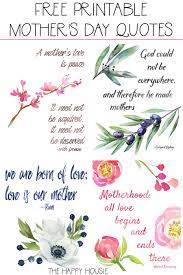 FREE PRINTABLE
MOTHER'S DAY QUOTES
A mother's love
is peace.
It need not
be acquired,
it need not
be deserved.
God could
not be
everywhere,
and therefore he made
mothers
we are born of love;
love is our mother.
-Rumi
Motherhood:
all love
begins
and ends
there.
THE HAPPY HOUSIE